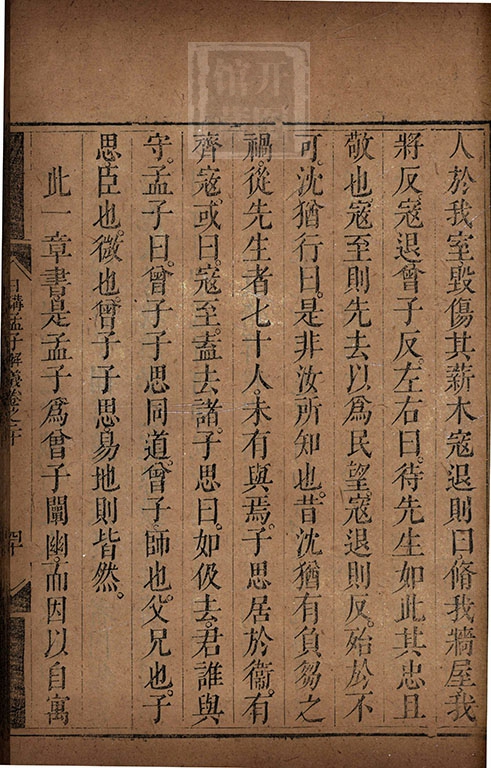 人於我室毀傷其薪木寇退則曰脩我牆屋我
將反寇退曾子反左右曰待先生如此其忠且
敬也寇至則先去以爲民望寇退則反殆於不
可沈猶行曰是非汝所知也昔沈猶有負芻之
禍從先生者七十人未有與焉子思居於衞有
齊寇或曰寇至盍去諸子思曰如伋去君誰與
守孟子曰曾子子思同道曾子師也父兄也子
思臣也微也曾子子思易地則皆然
此一章書是孟子爲曾子闡幽而因以自寓
日講孟子解義卷之十